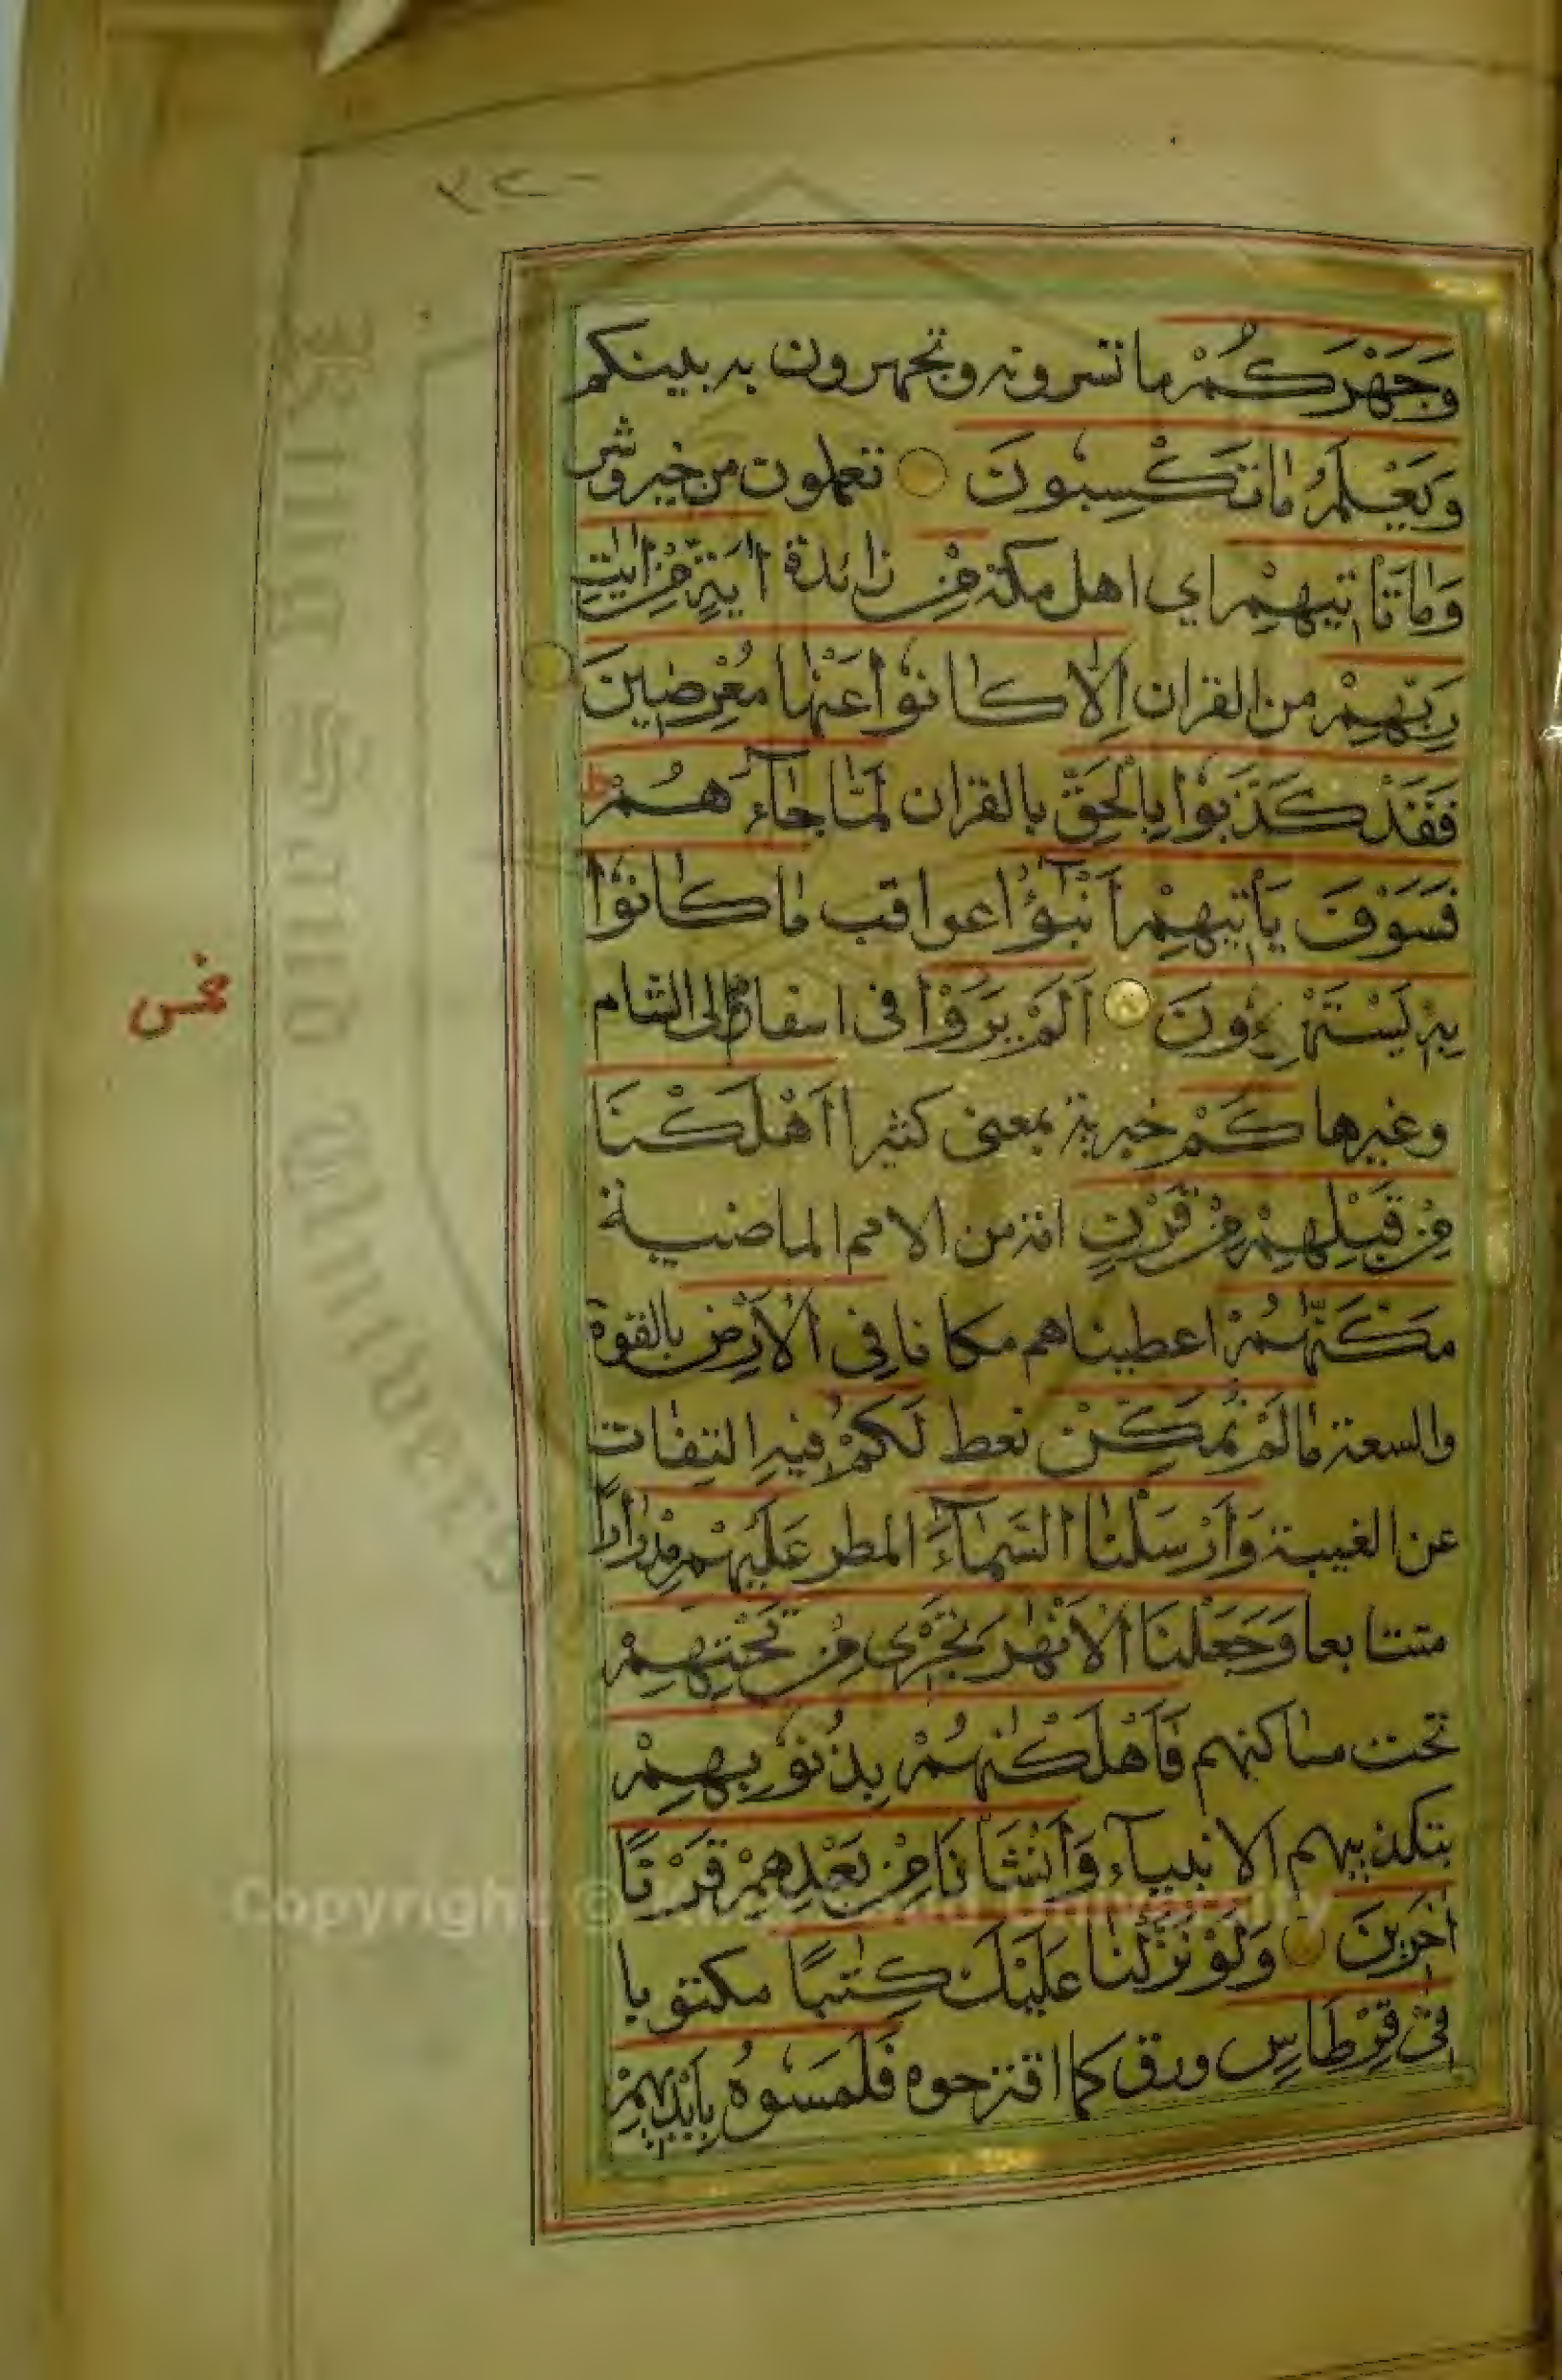 ٢٢٠
وَجَهْرَكُمْ ما تسرونه وتجهرون به بينكم
وَيَعْلَمُ مَا تَكْسِبُونَ تعملون من خير وشر
وَمَا تَأْتِيهِمْ اي اهل مكة مِنْ زائدة اٰيَةٍ مِنْ اٰيٰتِ
رَبِّهِمْ من القران اِلَّا كَانُوْا عَنْهَا مُعْرِضِينَ
فَقَدْ كَذَّبُوْا بِالْحَقِّ بالقران لَمَّا جَآءَهُمْ ط
فَسَوْفَ يَأْتِيهِمْ اَنْبٰٓؤُا عواقب مَا كَانُوْا
بِهِ يَسْتَهْزِءُونَ اَلَمْ يَرَوْا في اسفارهم الى الشام
خمس
وغيرها كَمْ خبرية بمعنى كثيرا اَهْلَكْنَا
مِنْ قَبْلِهِمْ مِنْ قَرْنٍ امة من الامم الماضية
مَكَّنّٰهُمْ اعطيناهم مكانا فِي الْاَرْضِ بالقوة
والسعة مَا لَمْ نُمَكِّنْ نعط لَكُمْ فيه التفات
عن الغيبة وَاَرْسَلْنَا السَّمَآءَ المطر عَلَيْهِمْ مِدْرَارًا
متتابعا وَجَعَلْنَا الْاَنْهٰرَ تَجْرِي مِنْ تَحْتِهِمْ
تحت مساكنهم فَاَهْلَكْنٰهُمْ بِذُنُوْبِهِمْ
بتكذيبهم الانبيآء وَاَنْشَأْنَا مِنْ بَعْدِهِمْ قَرْنًا
اٰخَرِينَ وَلَوْ نَزَّلْنَا عَلَيْكَ كِتٰبًا مكتوبا
فِي قِرْطَاسٍ ورق كما اقترحوه فَلَمَسُوْهُ بِاَيْدِيهِمْ
King Saud University
Copyright © King Saud University